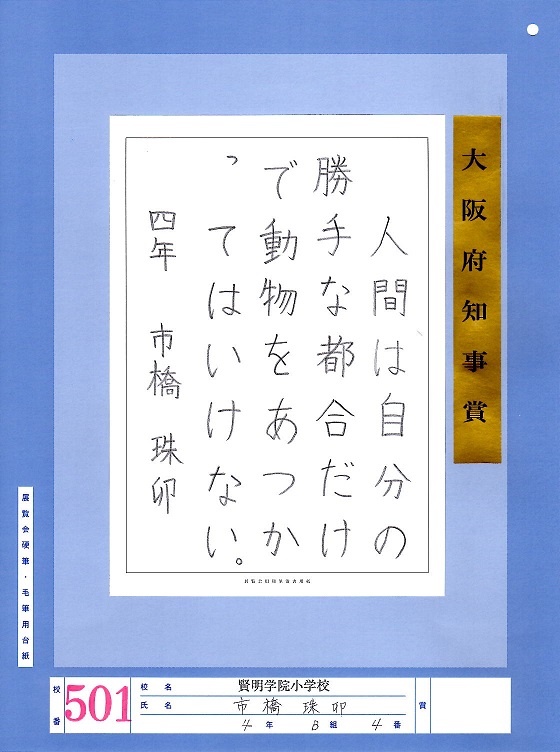 大阪府知事賞
人間は自分の
勝手な都合だけ
で動物をあつか
ってはいけない。
四年 市橋 珠卯
展覧会硬筆・毛筆用台紙
校番 501
校名 賢明学院小学校
氏名 市橋 珠卯
4年 B組 4番
賞